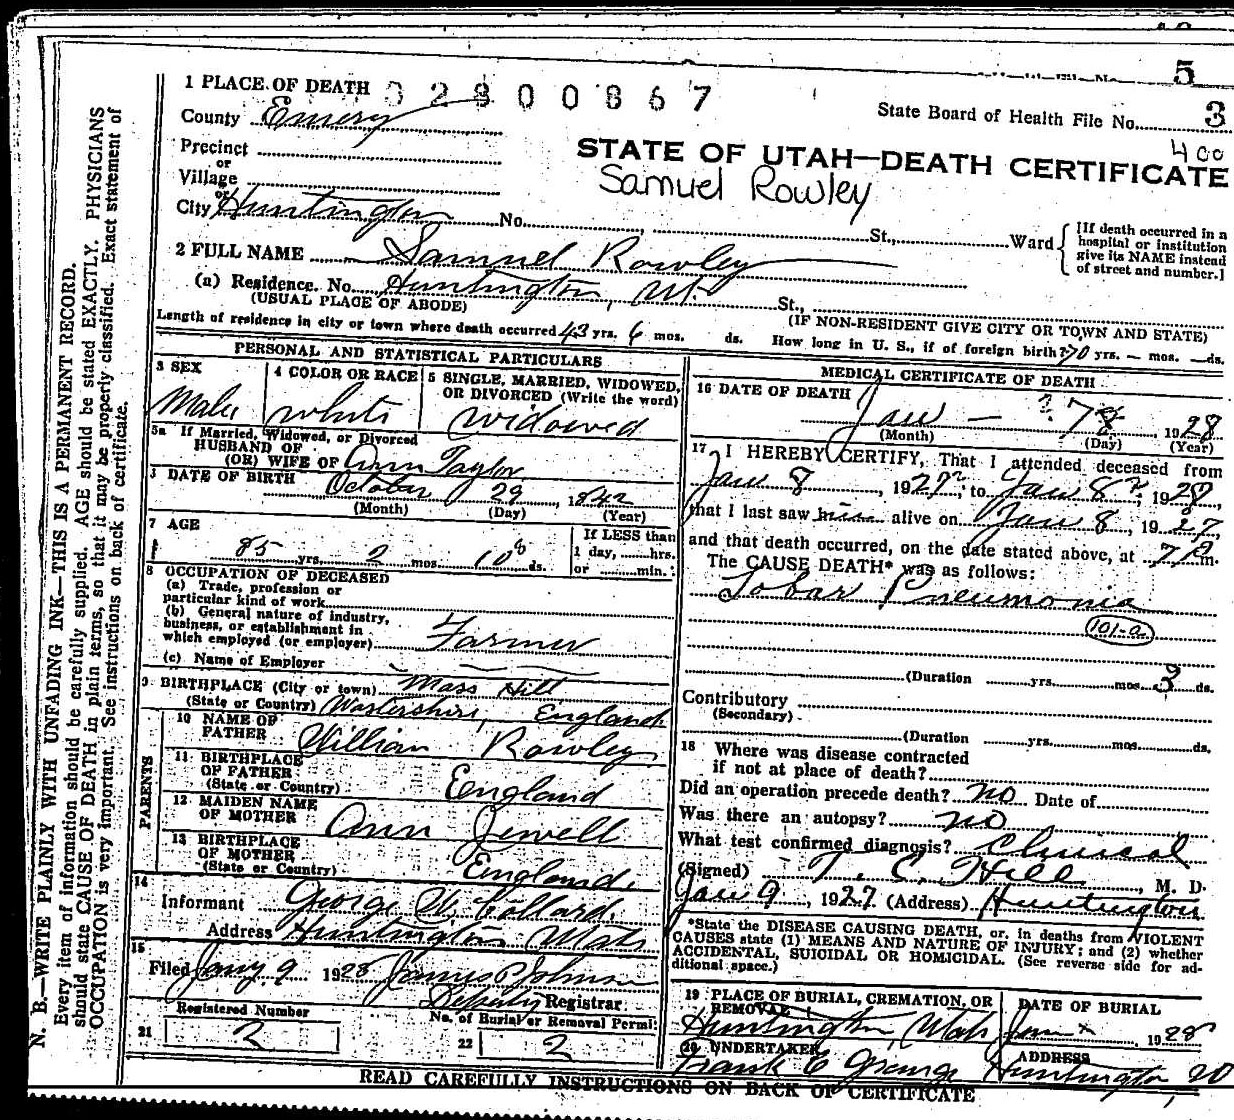 5
1 PLACE OF DEATH 02800867
State Board of Health File No. 3
County Emery
400
Precinct
or
Village
or
City Huntington No. St., Ward
STATE OF UTAH—DEATH CERTIFICATE
Samuel Rowley
[If death occurred in a
hospital or institution
give its NAME instead
of street and number.]
2 FULL NAME Samuel Rowley
(a) Residence. No. Huntington, Ut. St.,
(USUAL PLACE OF ABODE)
(IF NON-RESIDENT GIVE CITY OR TOWN AND STATE)
Length of residence in city or town where death occurred 43 yrs. 6 mos. ds. How long in U. S., if of foreign birth? 70 yrs. — mos. — ds.
PERSONAL AND STATISTICAL PARTICULARS
3 SEX
Male
4 COLOR OR RACE
white
5 SINGLE, MARRIED, WIDOWED,
OR DIVORCED (Write the word)
widowed
5a If Married, Widowed, or Divorced
HUSBAND OF
(OR) WIFE OF Ann Taylor
DATE OF BIRTH October 29 1842
(Month) (Day) (Year)
7 AGE
85 yrs. 2 mos. 10 ds.
If LESS than
1 day, hrs.
or min.
8 OCCUPATION OF DECEASED
(a) Trade, profession or
particular kind of work
(b) General nature of industry,
business, or establishment in
which employed (or employer) Farmer
(c) Name of Employer
9 BIRTHPLACE (City or town) Mass Hill
(State or Country) England
PARENTS
10 NAME OF
FATHER William Rowley
11 BIRTHPLACE
OF FATHER
(State or Country) England
12 MAIDEN NAME
OF MOTHER Ann Jewell
13 BIRTHPLACE
OF MOTHER
(State or Country) England.
14
Informant George Collard.
Address Huntington Utah
15
Filed Jany 9 1928 James P Johnson
Deputy Registrar
Registered Number
21 2
No. of Burial or Removal Permit
22 2
MEDICAL CERTIFICATE OF DEATH
16 DATE OF DEATH
Jan — 1928
(Month) (Day) (Year)
17 I HEREBY CERTIFY, That I attended deceased from
Jan 8, 1927, to Jan 8, 1928,
that I last saw him alive on Jan 8, 1927,
and that death occurred, on the date stated above, at 7 m.
The CAUSE DEATH* was as follows:
Lobar Pneumonia
101-a
(Duration yrs. mos. 3 ds.
Contributory
(Secondary)
(Duration yrs. mos. ds.
18 Where was disease contracted
if not at place of death?
Did an operation precede death? no Date of
Was there an autopsy? no
What test confirmed diagnosis? Clinical
(Signed) T. C. Hill, M. D.
Jan 9, 1927. (Address) Huntington
*State the DISEASE CAUSING DEATH, or, in deaths from VIOLENT
CAUSES state (1) MEANS AND NATURE OF INJURY; and (2) whether
ACCIDENTAL, SUICIDAL OR HOMICIDAL. (See reverse side for ad-
ditional space.)
19 PLACE OF BURIAL, CREMATION, OR
REMOVAL
Huntington, Utah
DATE OF BURIAL
1928
20 UNDERTAKER
Frank E George
ADDRESS
Huntington
READ CAREFULLY INSTRUCTIONS ON BACK OF CERTIFICATE
N. B.—WRITE PLAINLY WITH UNFADING INK—THIS IS A PERMANENT RECORD.
Every item of information should be carefully supplied. AGE should be stated EXACTLY. PHYSICIANS
should state CAUSE OF DEATH in plain terms, so that it may be properly classified. Exact statement of
OCCUPATION is very important. See instructions on back of certificate.